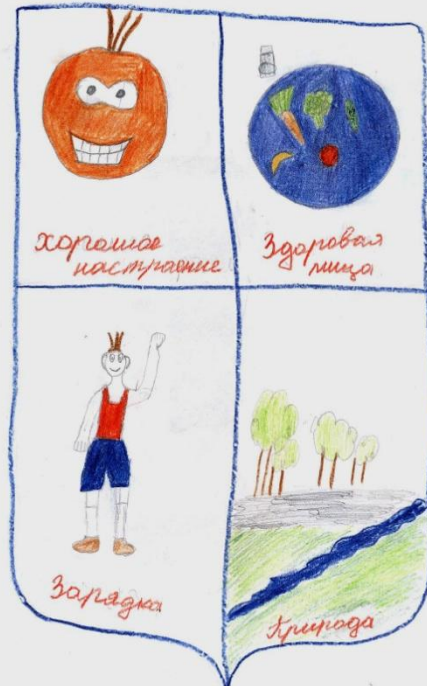 хорошое
настраение
Здоровая
пища
Зарядка
Природа